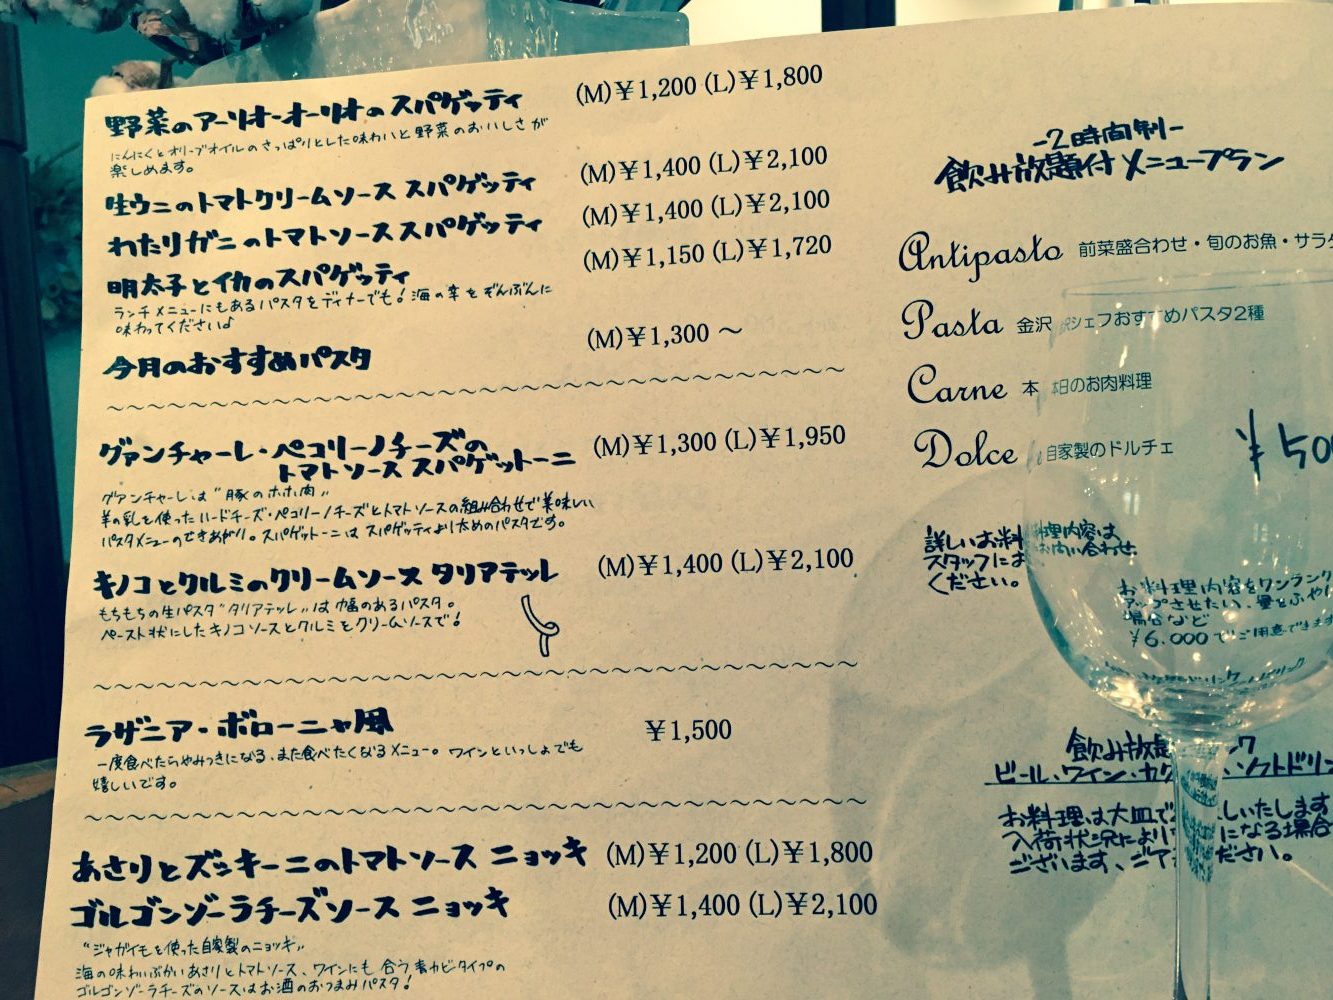 野菜のアーリオ・オーリオのスパゲッティ (M)￥1,200 (L)￥1,800
にんにくとオリーブオイルのさっぱりとした味わいと野菜のおいしさが
楽しめます。
生ウニのトマトクリームソース スパゲッティ (M)￥1,400 (L)￥2,100
わたりガニのトマトソーススパゲッティ (M)￥1,400 (L)￥2,100
明太子とイカのスパゲッティ (M)￥1,150 (L)￥1,720
ランチメニューにもあるパスタをディナーでも！海の幸をぞんぶんに
味わってください♪
今月のおすすめパスタ (M)￥1,300 〜
グアンチャーレ・ペコリーノチーズの
トマトソース スパゲットーニ (M)￥1,300 (L)￥1,950
グアンチャーレは“豚のホホ肉”
羊の乳を使ったハードチーズ・ペコリーノチーズとトマトソースの組み合わせで美味しい
パスタメニューのできあがり。スパゲットーニはスパゲッティより太めのパスタです。
キノコとクルミのクリームソース タリアテッレ (M)￥1,400 (L)￥2,100
もちもちの生パスタ“タリアテッレ”は幅のあるパスタ。
ペースト状にしたキノコソースとクルミをクリームソースで！
ラザニア・ボローニャ風 ￥1,500
一度食べたらやみつきになる、また食べたくなるメニュー。ワインといっしょでも
嬉しいです。
あさりとズッキーニのトマトソース ニョッキ (M)￥1,200 (L)￥1,800
ゴルゴンゾーラチーズソース ニョッキ (M)￥1,400 (L)￥2,100
“ジャガイモを使った自家製のニョッキ”
海の味わいぶかいあさりとトマトソース、ワインにも合う青カビタイプの
ゴルゴンゾーラチーズのソースはお酒のおつまみパスタ！
-2時間制-
飲み放題付メニュープラン
Antipasto 前菜盛合わせ・旬のお魚・サラダ
Pasta 金沢 シェフおすすめパスタ2種
Carne 本日のお肉料理
Dolce 自家製のドルチェ
￥500
詳しいお料理内容は
スタッフにお問い合わせ
ください。
お料理内容をワンランク
アップさせたい、量をふやし
場合など
￥6.000でご用意できます
飲み放題
ビール・ワイン・カク ソフトドリン
お料理は大皿で しいたします
入荷状況により になる場合
ございます、ご了 ください。